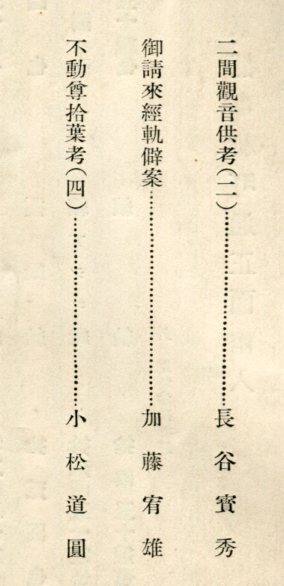 二間觀音供考(二)……………………長谷寳秀
御請來經軌僻案……………………加藤宥雄
不動尊拾葉考(四)……………………小松道圓